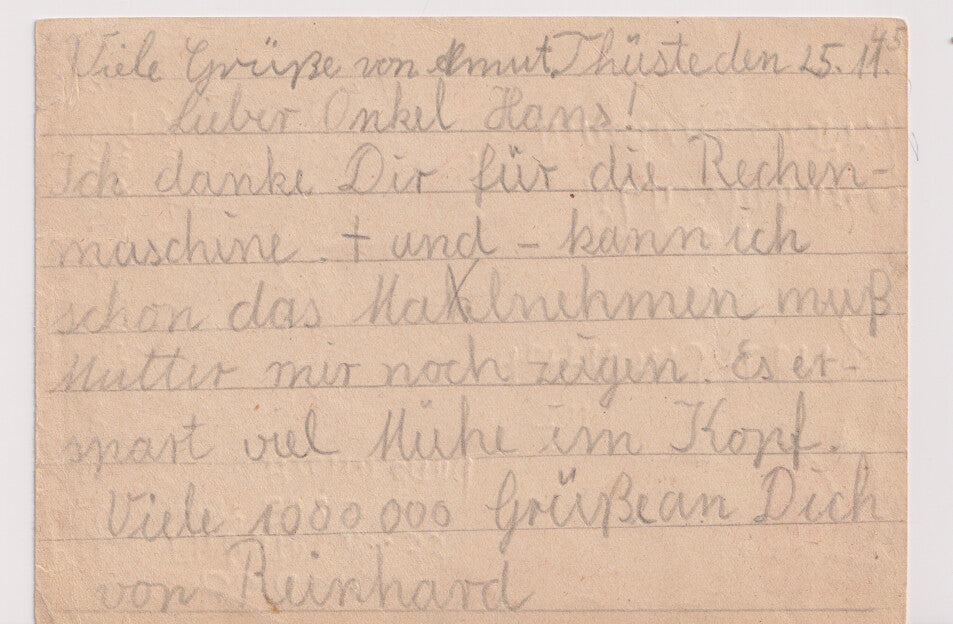 Viele Grüße von Almut. Thüste den 25. 11. 45
Lieber Onkel Hans!
Ich danke Dir für die Rechen-
maschine. + und - kann ich
schon das Malnehmen muß
Mutter mir noch zeigen. Es er-
spart viel Mühe im Kopf.
Viele 1000 000 Grüße an Dich
von Reinhard